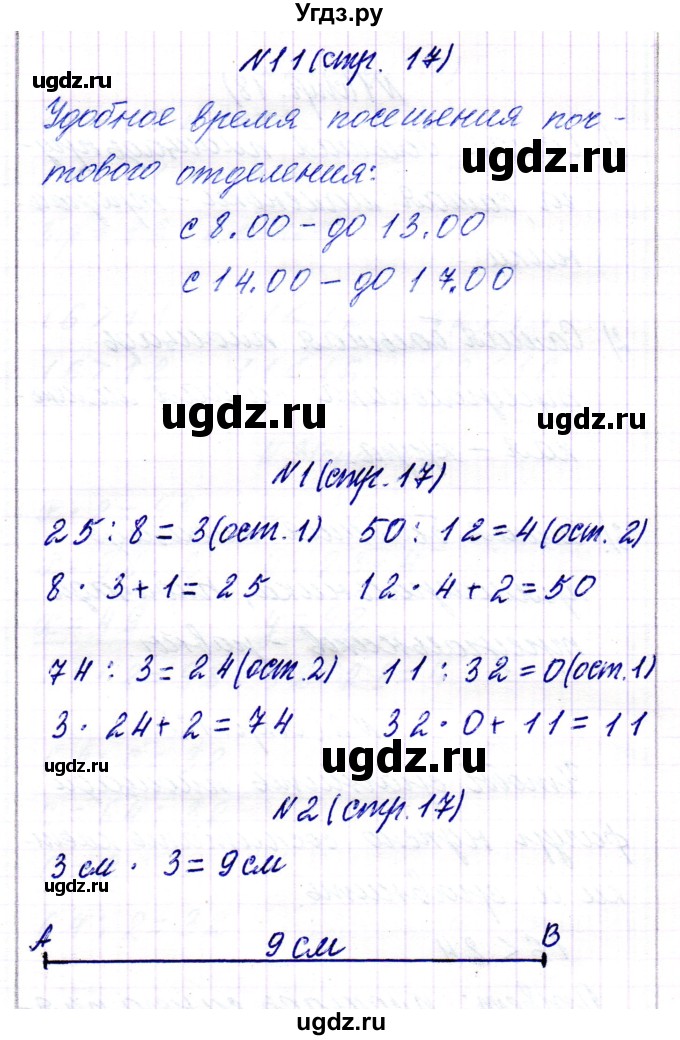 Угдз.ру
ugdz.ru
N11 (стр. 17)
ugdz.ru
Удобное время посещения поч-
ugdz.ru
тового отделения:
с 8.00 - до 13.00
с 14.00 - до 17.00
ugdz.ru
ugdz.ru
N1 (стр. 17)
ugdz.ru
25 : 8 = 3 (ост. 1) 50 : 12 = 4 (ост. 2)
8 · 3 + 1 = 25 12 · 4 + 2 = 50
74 : 3 = 24 (ост. 2) 11 : 32 = 0 (ост. 1)
3 · 24 + 2 = 74 32 · 0 + 11 = 11
ugdz.ru
ugdz.ru
N2 (стр. 17)
3 см · 3 = 9 см
ugdz.ru
ugdz.ru
A 9 см B
ugdz.ru
ugdz.ru